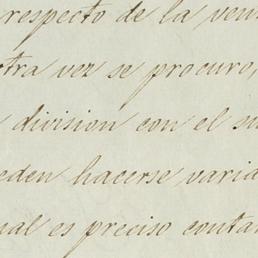 respecto de la ven
otra vez se procuro,
division con el su
eden hacerse varia
ual es preciso conta